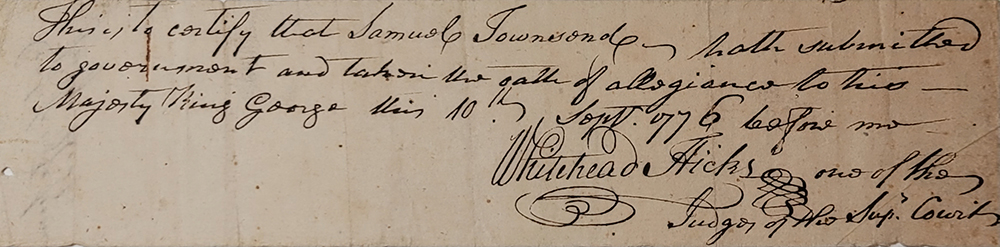 This is to certify that Samuel Townsend hath submitted
to government and taken the oath of allegiance to his
Majesty King George this 10th Sept. 1776 before me
Whitehead Hicks one of the
Judges of the Supr. Court